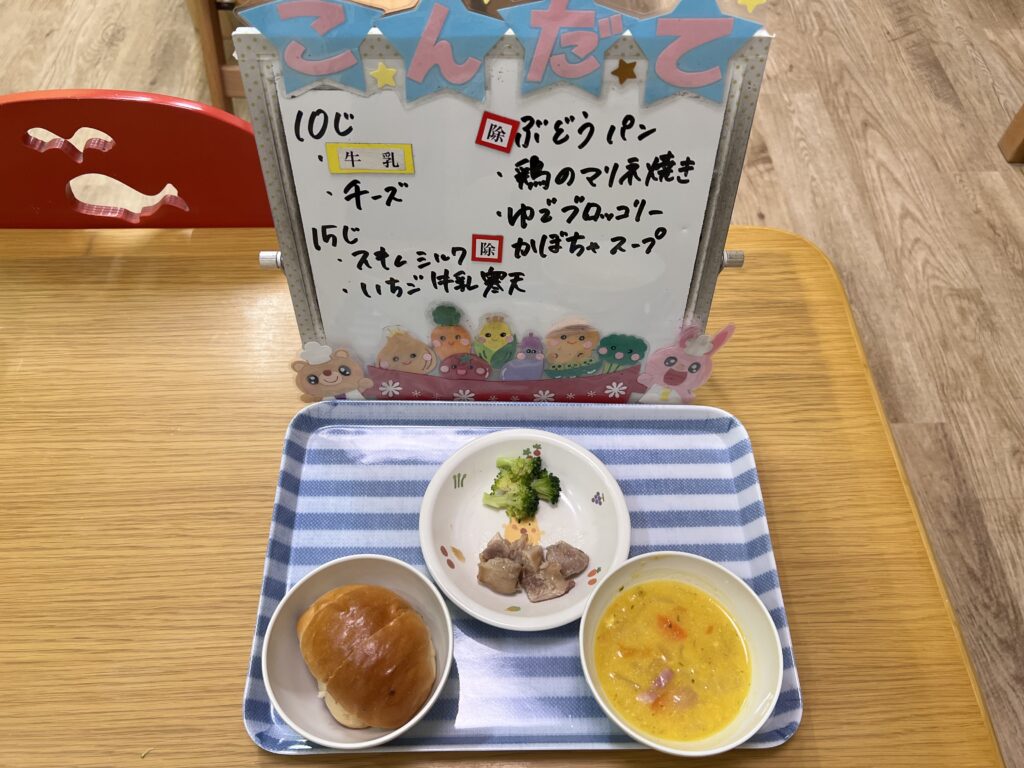 こんだて
10じ
・牛乳
・チーズ
15じ
・スキムミルク
・いちご牛乳寒天
除 ぶどうパン
・鶏のマリネ焼き
・ゆでブロッコリー
除 かぼちゃスープ